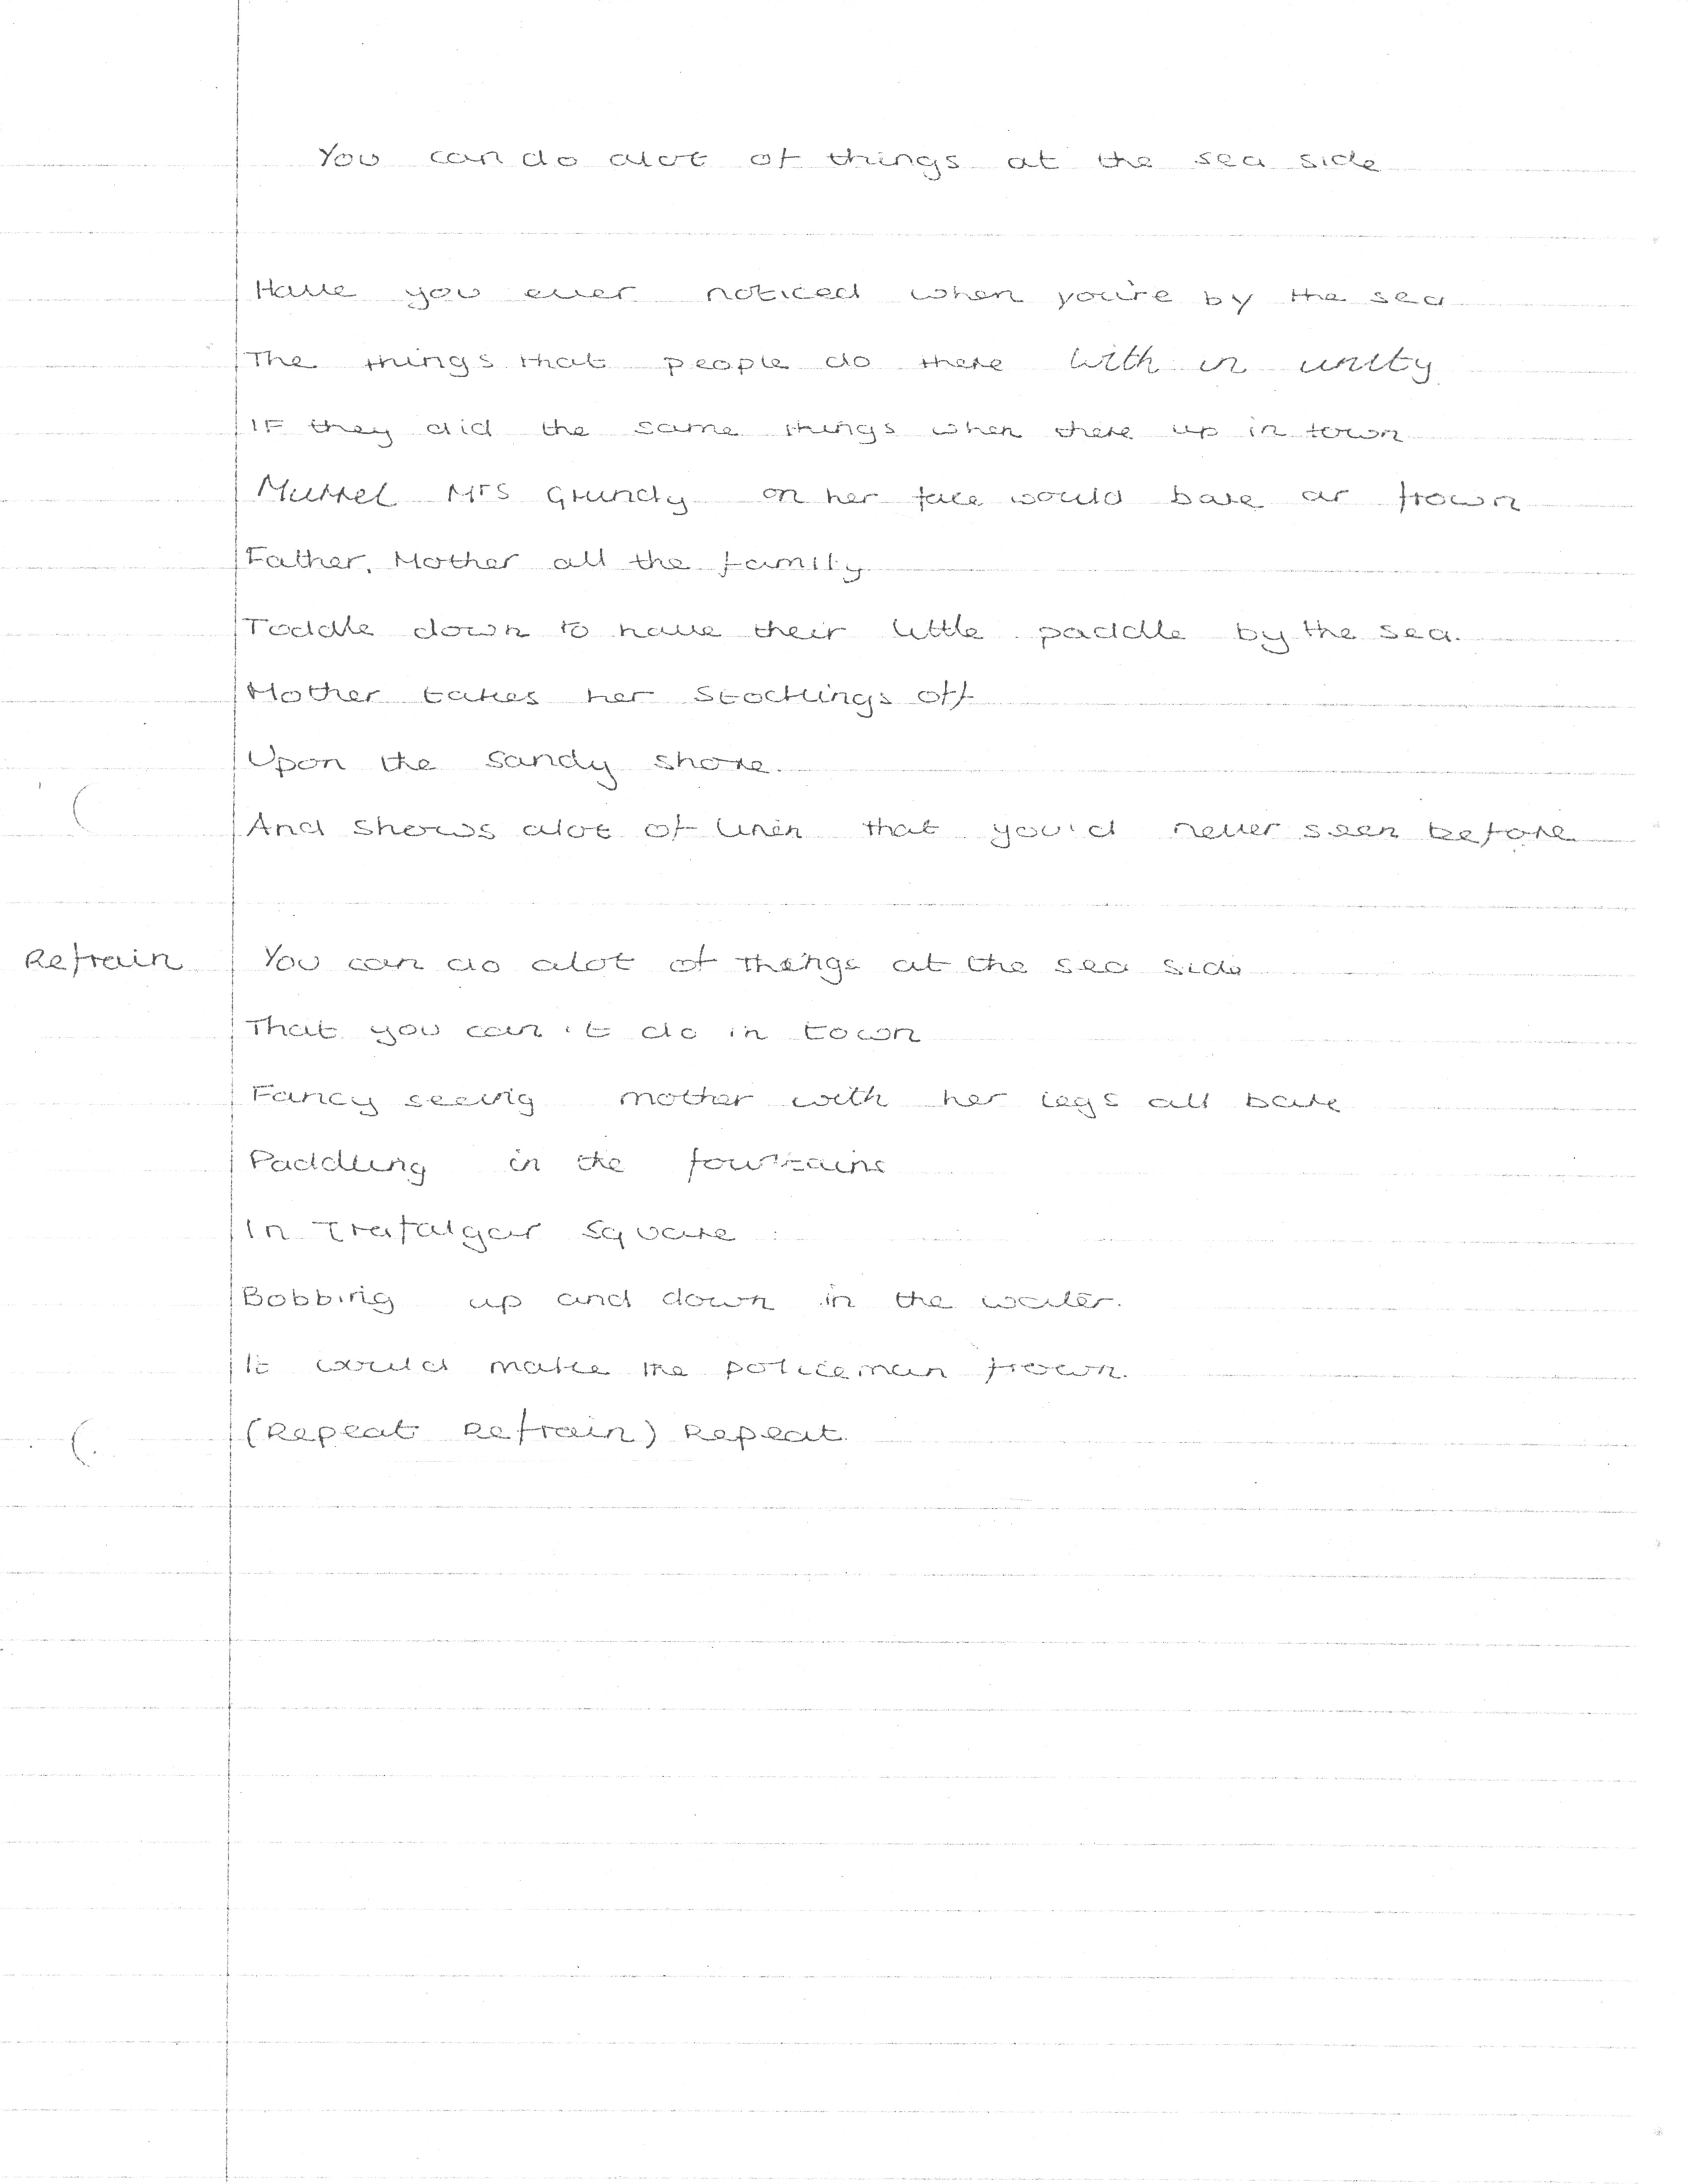 You can do alot of things at the sea side
Have you ever noticed when you're by the sea
The things that people do there with in unity
IF they did the same things when there up in town
Mrs Grundy on her face would bare ar frown
Father, Mother all the family
Toddle down to have their little paddle by the sea.
Mother takes her stockings off
Upon the sandy shore.
And shows alot of linen that you'd never seen before
Refrain You can do alot of things at the sea side
That you can't do in town
Fancy seeing mother with her legs all bare
Paddling in the fountains
In Trafalgar Square
Bobbing up and down in the water.
It would make the policeman frown.
(Repeat Refrain) Repeat.